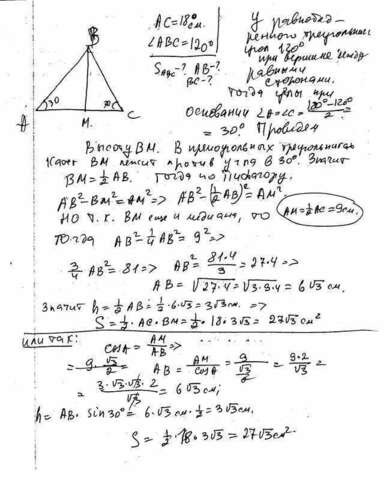 B
AC=18см.
∠ABC=120°
S_ABC-? AB-? BC-?
30
30
A
M.
C
У равнобед-
ренного треугольника
угол 120°
при вершине между
равными
сторонами.
Тогда углы при
основании ∠A=∠C= (180°-120°)/2 =
= 30°. Проведем
Высоту BM. В прямоугольных треугольниках
Катет BM лежит против угла в 30°. Значит
BM=½AB. Тогда по Пифагору.
AB²-BM²=AM² => AB²-(½AB)²=AM²
НО т.к. BM еще и медиана, то
AM=½AC=9см.
Тогда AB²-¼AB²=9²
¾AB²=81=> AB²= 81·4/3 =27·4=>
AB=√27·4=√3·9·4=6√3 см.
Значит h=½AB=½·6√3=3√3см. =>
S=½·AC·BM=½·18·3√3=27√3см²
или так:
cosA= AM/AB =>
AB= AM/cosA = 9/(√3/2) = 9·2/√3 =
= 3·√3·√3·2/√3 = 6√3 см;
h= AB·sin30°=6√3см·½=3√3см.
S=½·18·3√3=27√3см².